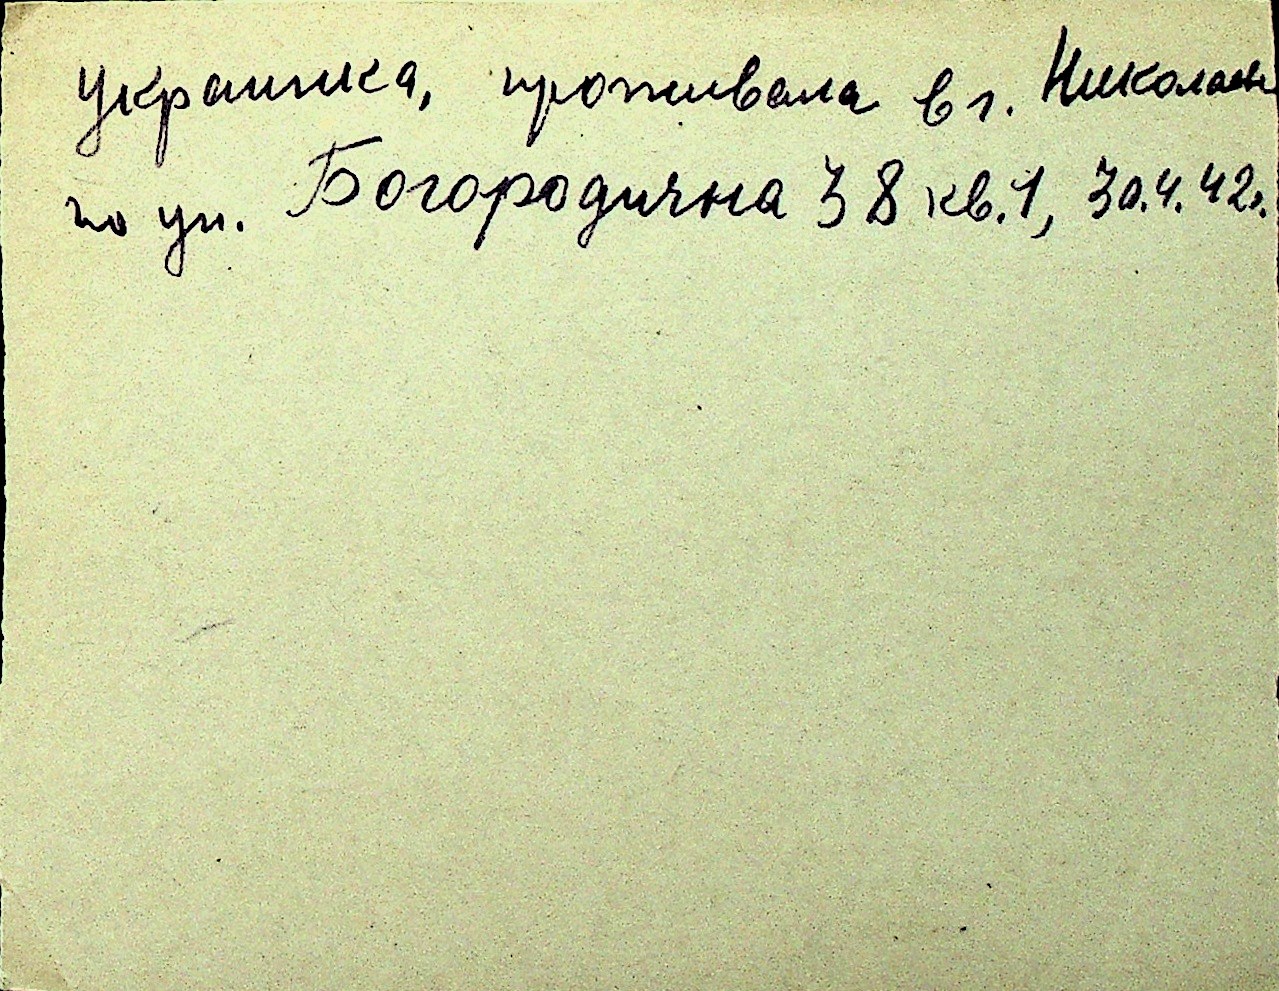 украинка, проживала в г. Николаев
по ул. Богородична 38 кв.1, 30.4.42г.